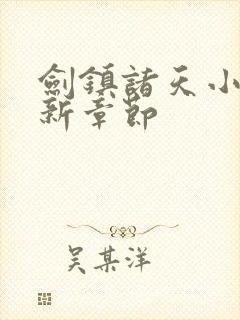 劍鎮諸天小
新章節
吴某洋